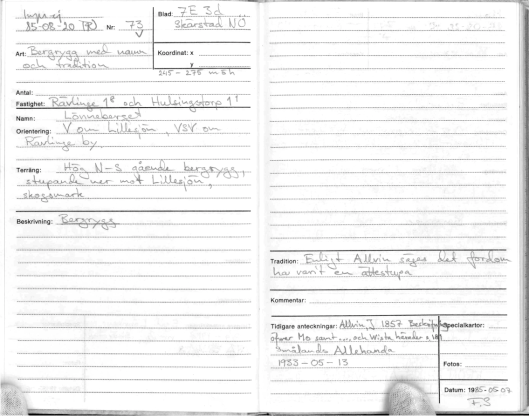 Inges ej
85-08-20 (TR) Nr: 73
Blad: 7E 3d
Skärstad NÖ
Art: Bergrygg med namn
och tradition
Koordinat: x
y
245-275 m ö h
Antal:
Fastighet: Rävlinge 1⁸ och Hulsingstorp 1¹
Namn: Lönneberget
Orientering: V om Lillesjön, VSV om
Rävlinge by.
Terräng: Hög N-S gående bergrygg,
stupande ner mot Lillesjön,
skogsmark
Beskrivning: Bergrygg
Tradition: Enligt Allvin säges det fordom
ha varit en ättestupa
Kommentar:
Tidigare anteckningar: Allvin, J 1857 Beskrifning
öfver Mo samt ... och Wista härader s.
Smålands Allehanda
1933-05-13
Specialkartor:
Fotos:
Datum: 1985-05-07
FS